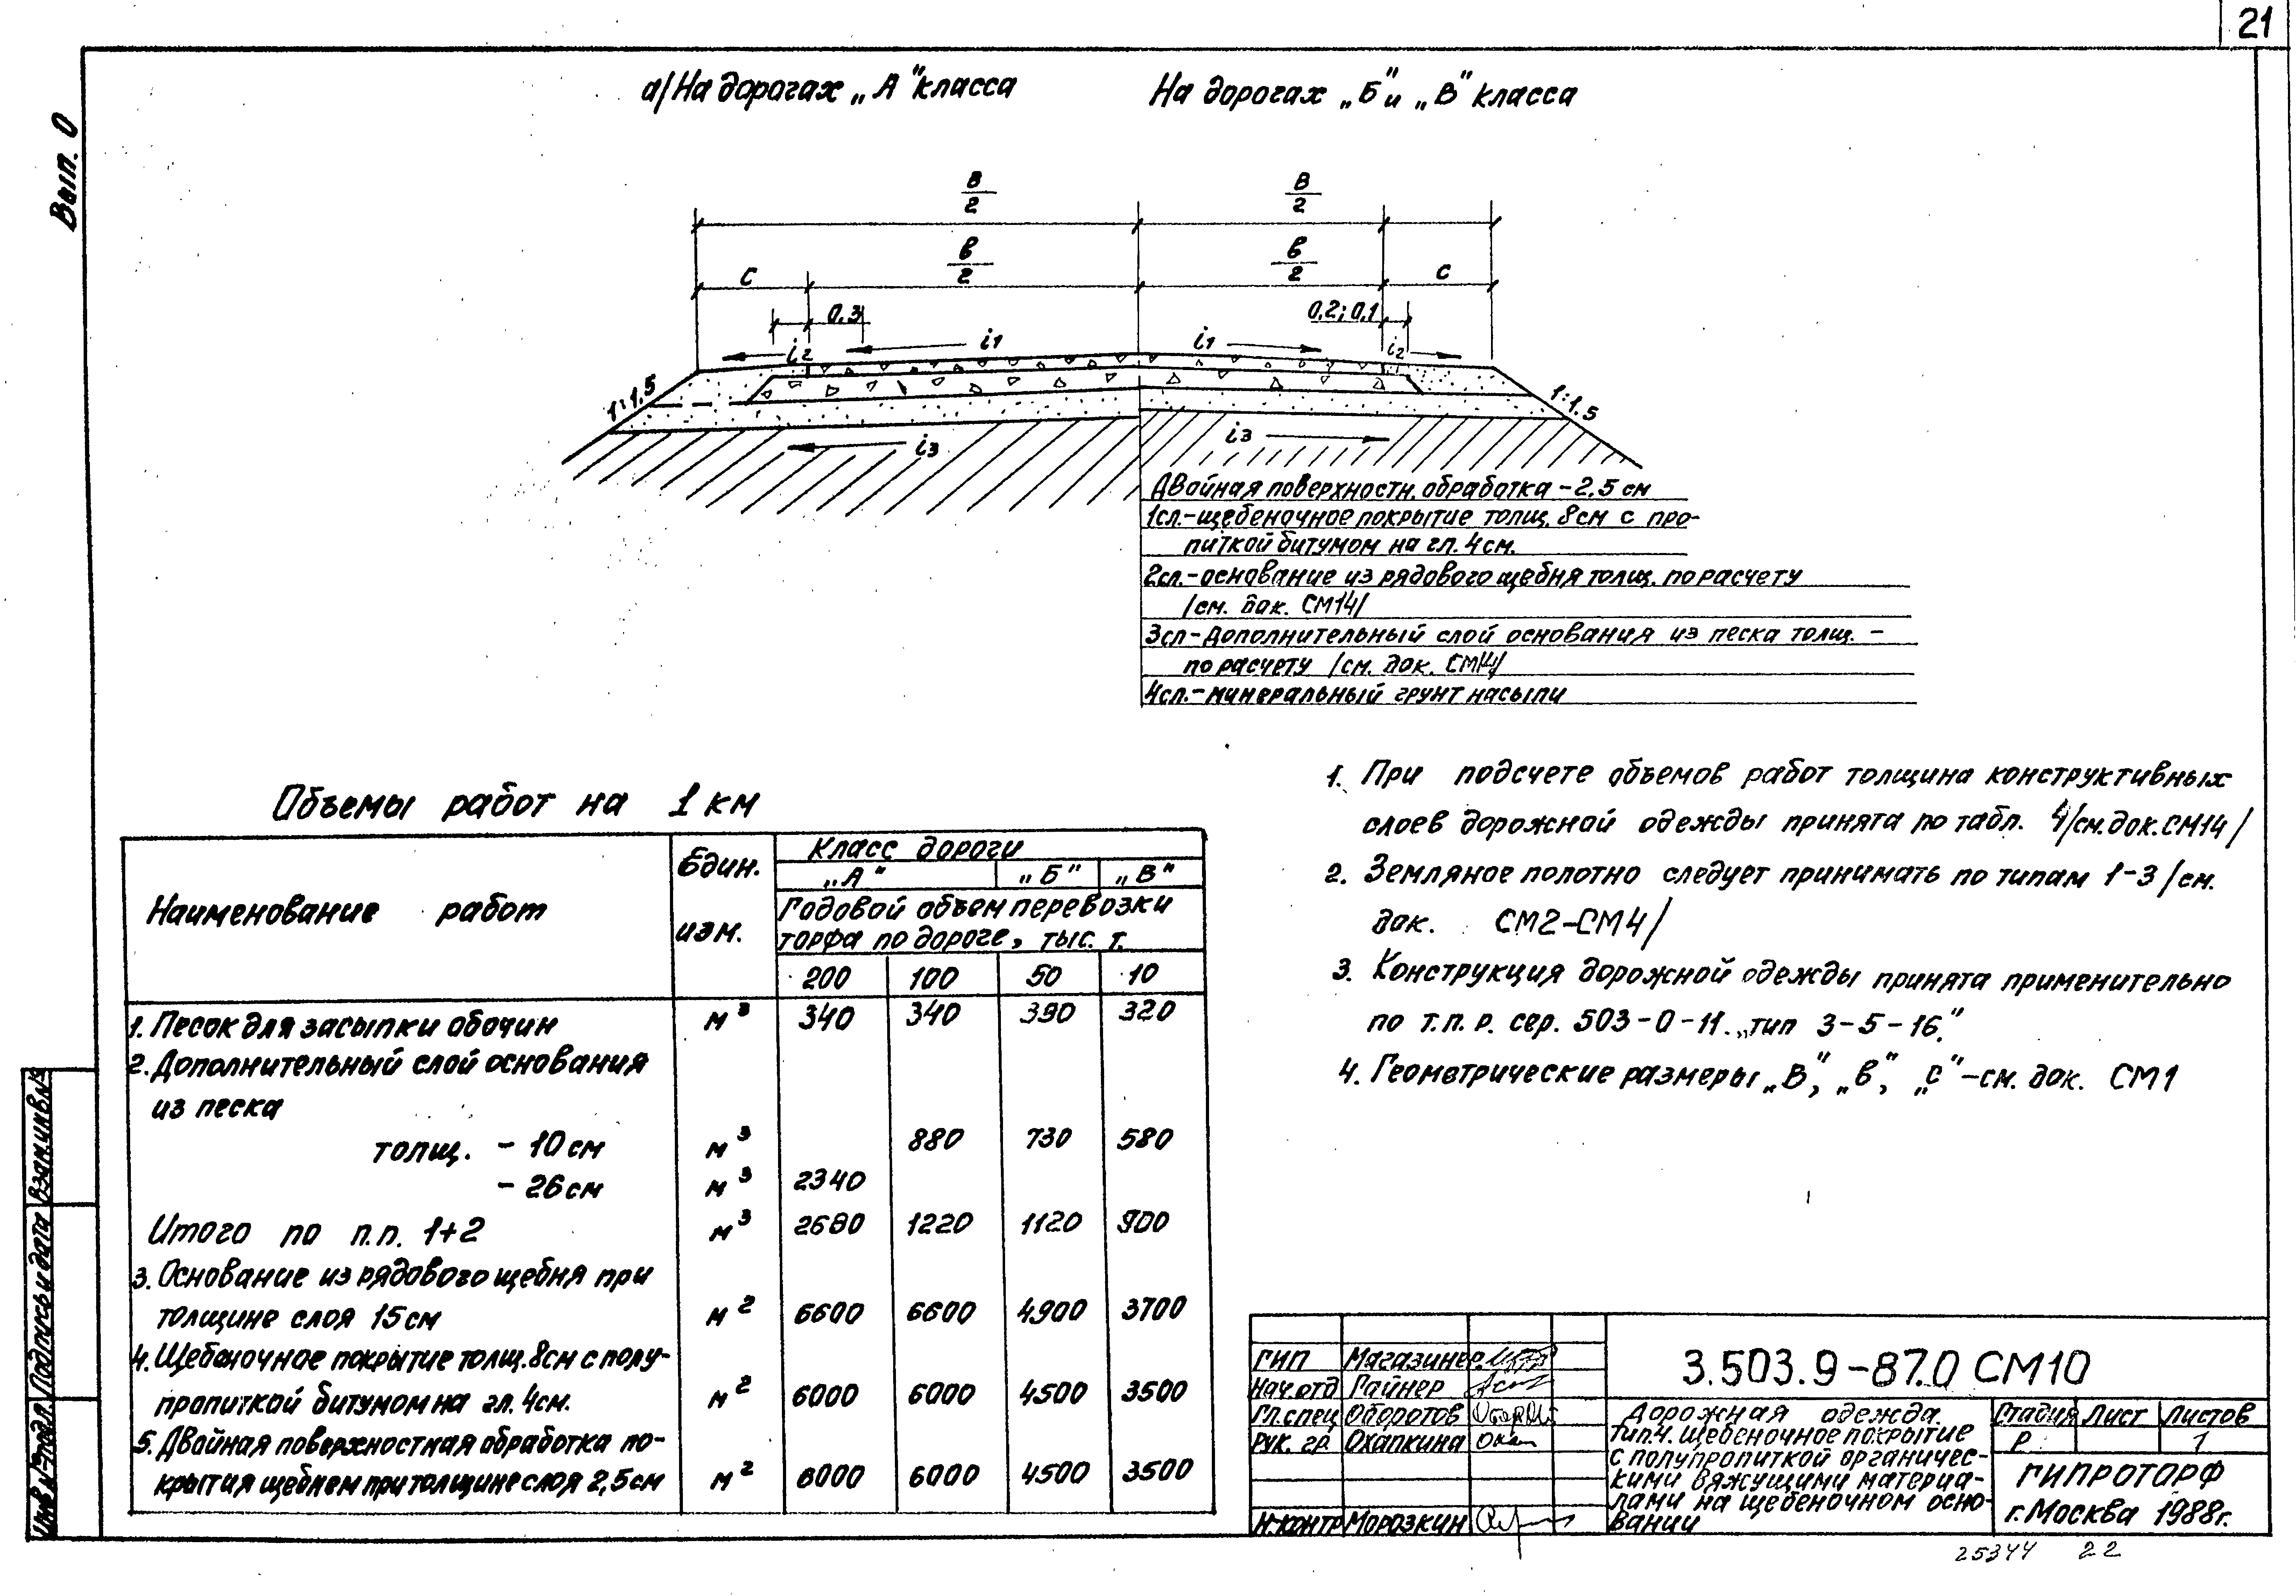 21
Вып. 0
а/На дорогах „А" класса
На дорогах „Б" и „В" класса
В/2
В/2
в/2
в/2
С
С
0,3
0,2; 0,1
i2
i1
i1
i2
1:1,5
1:1,5
i3
i3
Двойная поверхностн. обработка - 2,5 см
1сл.-щебеночное покрытие толщ. 8см с про-
питкой битумом на гл. 4 см.
2сл.-основание из рядового щебня толщ. по расчету
/см. док. СМ14/
3сл-дополнительный слой основания из песка толщ. -
по расчету /см. док. СМ14/
4сл.-минеральный грунт насыпи
Объемы работ на 1 км
Наименование работ
Един. изм.
Класс дороги
„А" „Б" „В"
Годовой объем перевозки
торфа по дороге, тыс. т.
200 100 50 10
1. Песок для засыпки обочин м³ 340 340 390 320
2. Дополнительный слой основания
из песка
толщ. - 10 см м³ 880 730 580
- 26 см м³ 2340
Итого по п.п. 1+2 м³ 2680 1220 1120 900
3. Основание из рядового щебня при
толщине слоя 15 см м² 6600 6600 4900 3700
4. Щебеночное покрытие толщ. 8см с полу-
пропиткой битумом на гл. 4см. м² 6000 6000 4500 3500
5. Двойная поверхностная обработка по-
крытия щебнем при толщине слоя 2,5 см м² 6000 6000 4500 3500
1. При подсчете объемов работ толщина конструктивных
слоев дорожной одежды принята по табл. 4/см. док. СМ14/
2. Земляное полотно следует принимать по типам 1-3 /см.
док. СМ2-СМ4/
3. Конструкция дорожной одежды принята применительно
по т.п.р. сер. 503-0-11. „тип 3-5-16."
4. Геометрические размеры „В", „в", „с" -см. док. СМ1
ГИП Магазинер
Нач.отд Гайнер
Гл.спец Оборотов
Рук. гр. Охапкина
Н.контр Морозкин
3.503.9-87.0 СМ10
Дорожная одежда.
Тип 4. Щебеночное покрытие
с полупропиткой органичес-
кими вяжущими материа-
лами на щебеночном осно-
вании
Стадия Лист Листов
Р 1
ГИПРОТОРФ
г. Москва 1988г.
Инв.№подл. Подпись и дата Взам.инв.№
25344 22